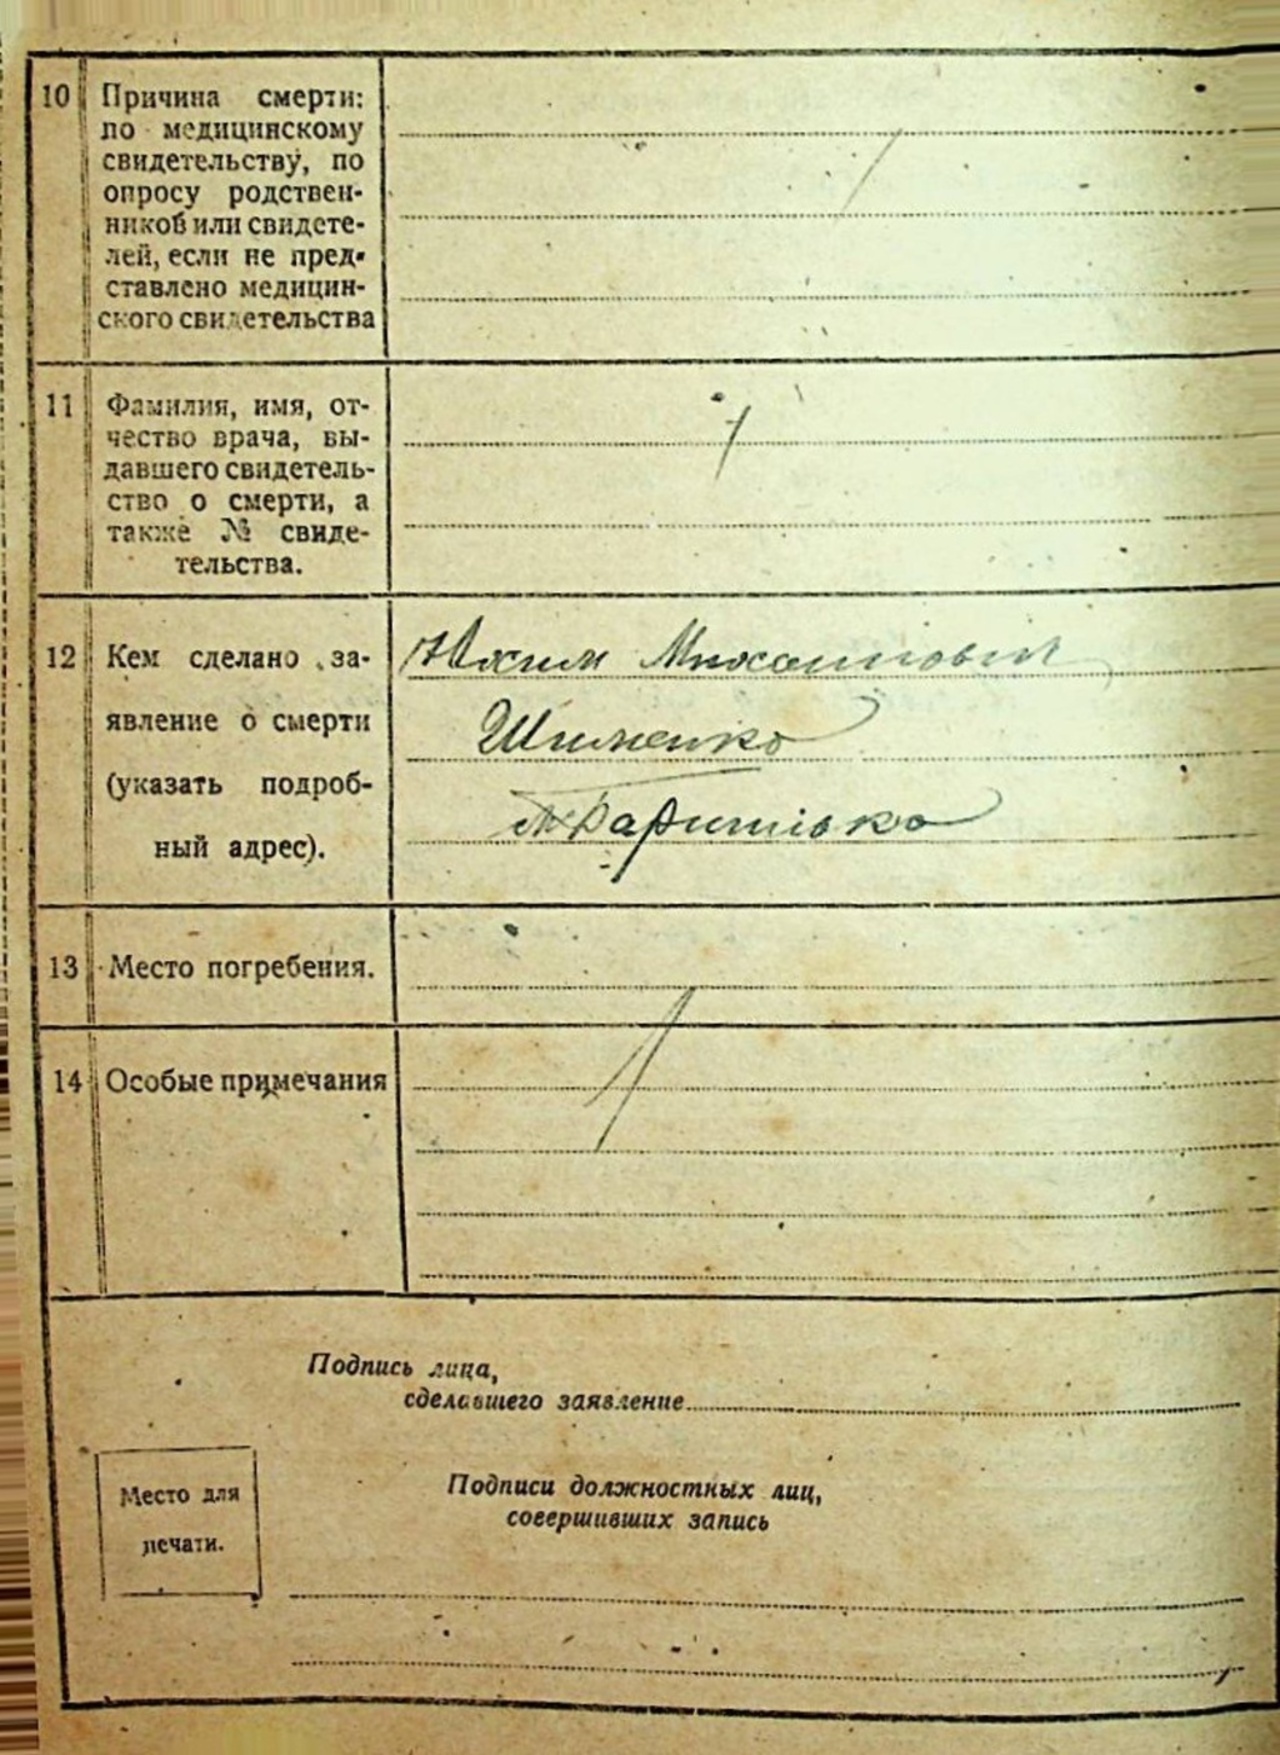 10 Причина смерти:
по медицинскому
свидетельству, по
опросу родствен-
ников или свидете-
лей, если не пред-
ставлено медицин-
ского свидетельства
11 Фамилия, имя, от-
чество врача, вы-
давшего свидетель-
ство о смерти, а
также № свиде-
тельства.
12 Кем сделано за-
явление о смерти
(указать подроб-
ный адрес).
Шименко
13 Место погребения.
14 Особые примечания
Подпись лица,
сделавшего заявление
Место для
печати.
Подписи должностных лиц,
совершивших запись